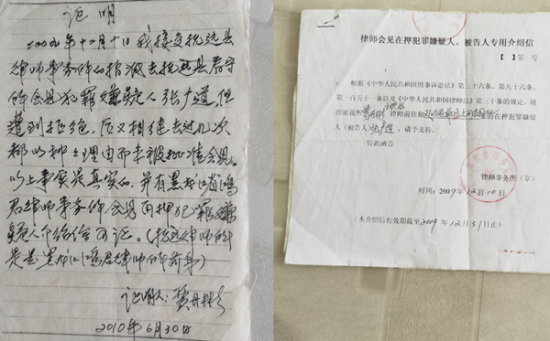 证明
2009年十二月十日我接受抚远县
律师事务所的指派去抚远县看守
所会见犯罪嫌疑人张广道,但
遭到拒绝,后又相继去过几次
都以种种理由而未被批准会见。
以上事实是真实的,并有黑龙江省鸿
君律师事务所会见在押犯罪嫌
疑人介绍信可证。(抚远律师所
是黑龙江鸿君律师所前身)
证明人:贾丹彬
2010年6月30日
律师会见在押犯罪嫌疑人、被告人专用介绍信
【 】第 号
根据《中华人民共和国刑事诉讼法》第三十六条、第九十六条、
第一百五十一条以及《中华人民共和国律师法》第三十条的规定,现
指派我所 律师前往 在押犯罪嫌疑
人(被告人) ,请予支持。
特此函告
律师事务所(章)
时间:2009年12月10日
(本介绍信有效期截至2009年12月31日止)